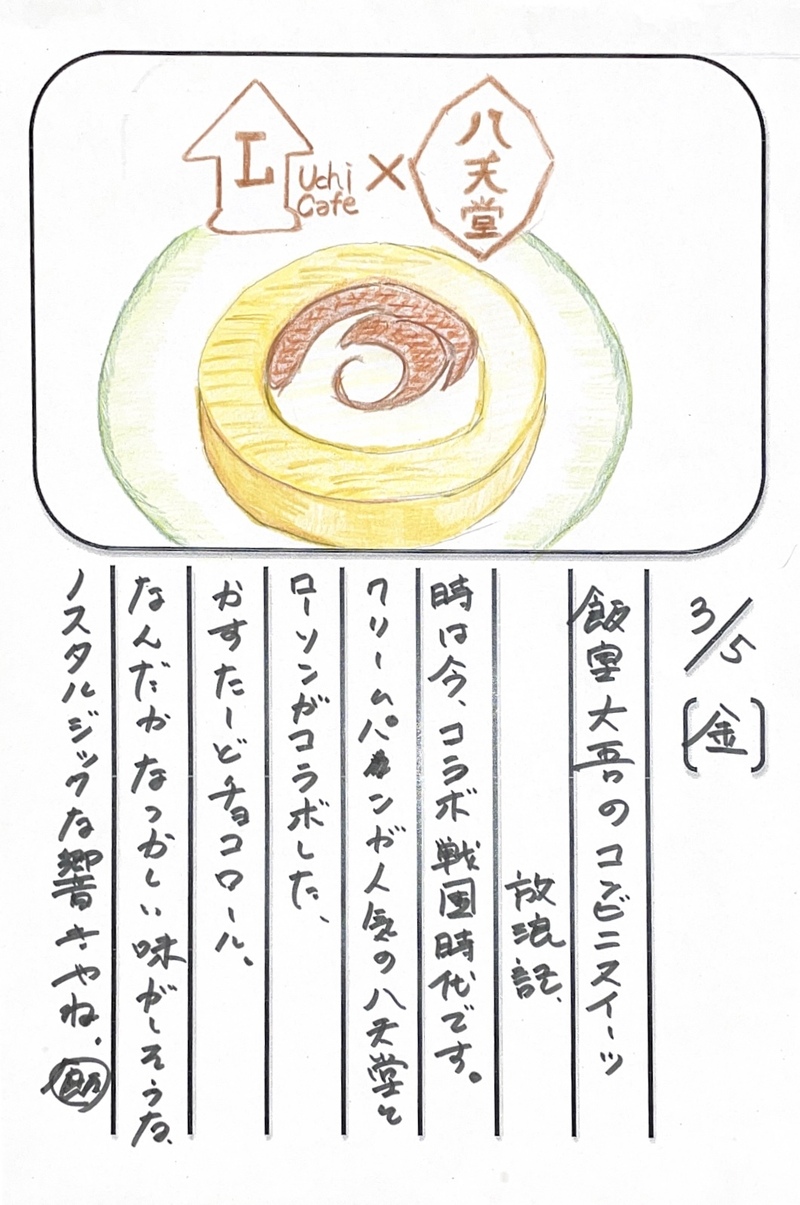 L
Uchi
Cafe
×
八天堂
3/5
[金]
飯室大吾のコンビニスイーツ
放浪記、
時は今、コラボ戦国時代です。
クリームパンが人気の八天堂と
ローソンがコラボした、
かすたーどチョコロール。
なんだかなつかしい味がしそうな、
ノスタルジックな響きやね、飯